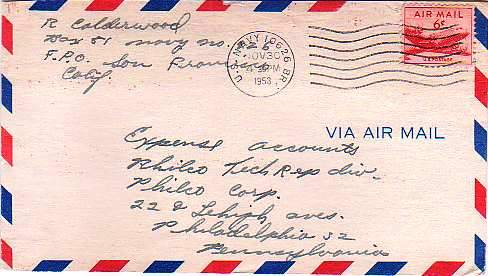 R Calderwood
Box 51 navy no.
F.P.O. San Francisco
Calif.
U.S. NAVY 10626 BR.
NOV 30
PM
1953
AIR MAIL
6¢
U.S. POSTAGE
VIA AIR MAIL
Expense accounts
Philco Tech Rep div.
Philco Corp.
22 & Lehigh aves.
Philadelphia 32
Pennsylvania